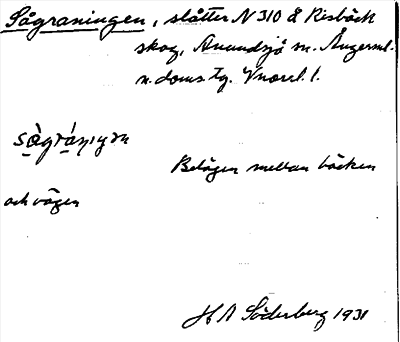 Sågraningen, slåtter N 310 å Risbäck
skog, Anundsjö sn. Ångerml.
n. doms. tg.
sågráningən
Belägen mellan bäcken
och vägen
H A Söderberg 1931